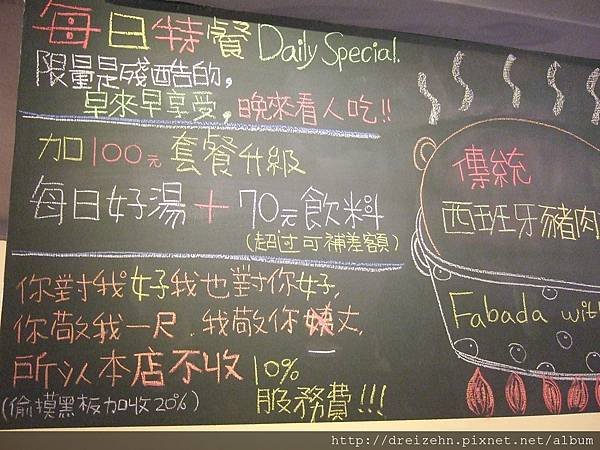 每日特餐 Daily Special.
限量是殘酷的,
早來早享受,晚來看人吃!!
加100元套餐升級
每日好湯+70元飲料
(超过可補差額)
你對我好我也對你好,
你敬我一尺.我敬你姨丈,
所以本店不收10%
服務費!!!
(偷摸黑板加收20%)
傳統
西班牙豬肉
Fabada with
http://dreizehn.pixnet.net/album